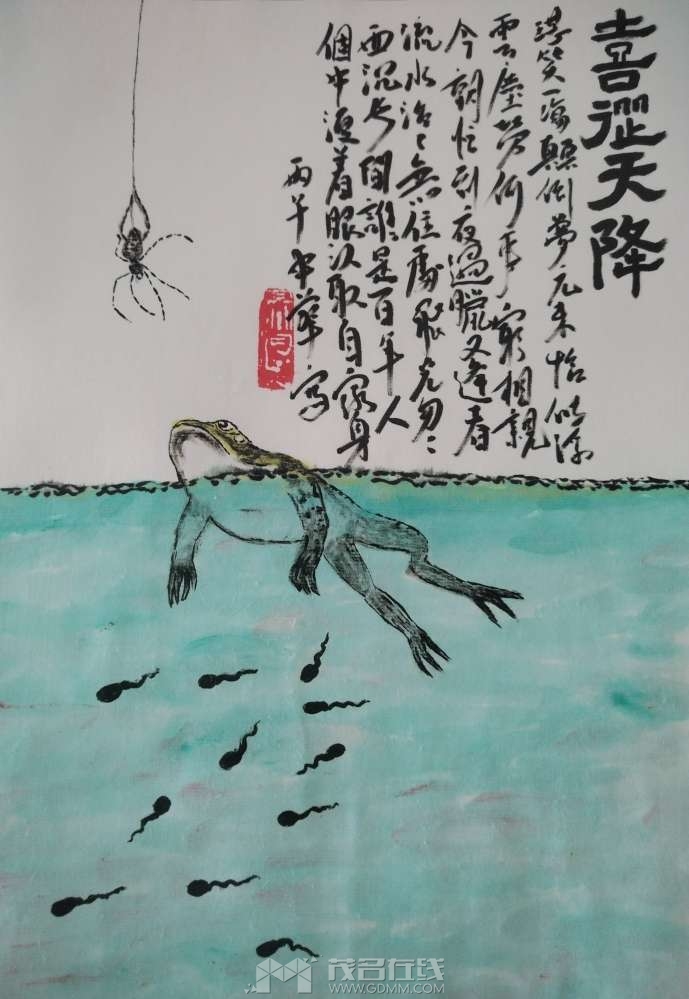 喜從天降
堪笑一場顛倒夢元来恰似浮
雲塵勞何事最相親
今朝忙到夜過臘又逢春
流水滔〻無住處飛光忽〻
西沉世間誰是百年人
個中須着眼认取自家身
丙午中華寫
茂名在线
WWW.GDMM.COM